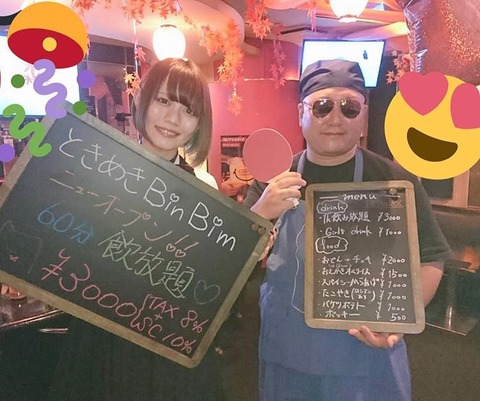 ときめきBinBim
ニューオープン!!
60分 飲放題♡
¥3000 TAX 8%
+
SC 10%
menu
drink
・1h飲み放題 ¥3000
・Girls drink ¥1000
food
・おでん+チェキ ¥2000
¥1500
¥1000
・たこやき ¥1000
・バケツポテト ¥1000
・ポッキー ¥500